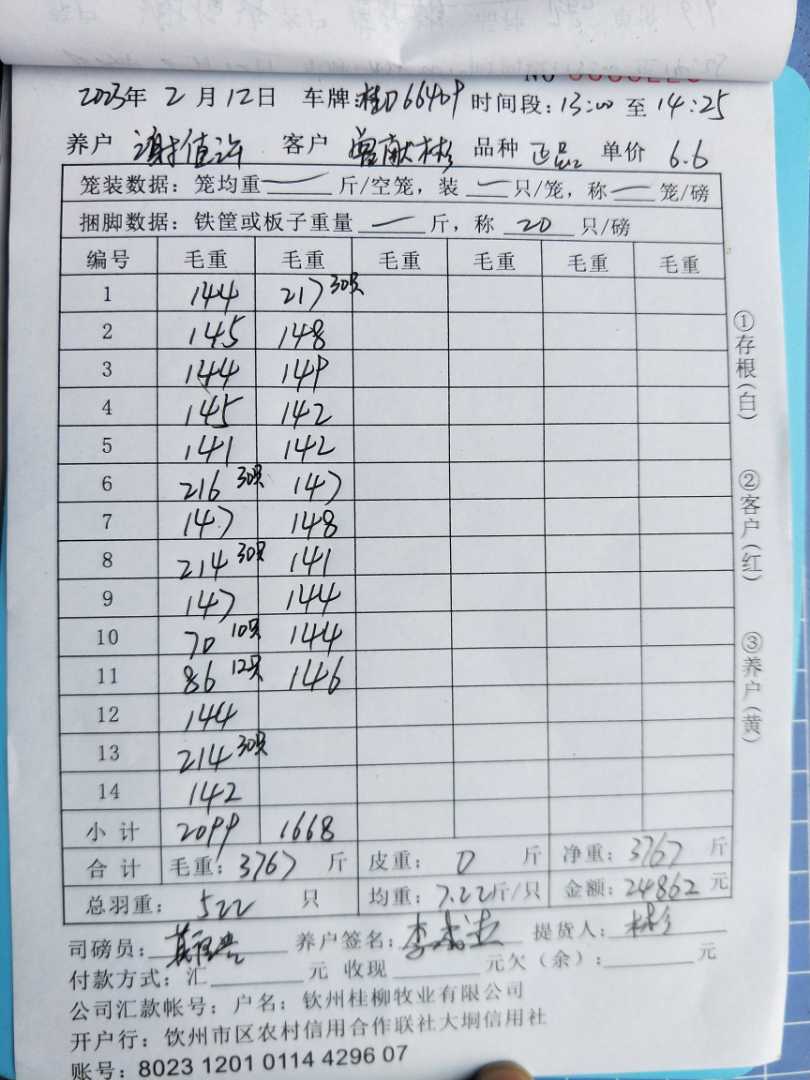 2023年 2 月 12 日 车牌:桂D66409 时间段: 13:00 至 14:25
养户 谢值许 客户 曾献彬 品种 正品 单价 6.6
笼装数据: 笼均重 — 斤/空笼, 装 — 只/笼, 称 — 笼/磅
捆脚数据: 铁筐或板子重量 — 斤, 称 20 只/磅
编号 毛重 毛重 毛重 毛重 毛重 毛重
1 144 217 30只
2 145 148
3 144 149
4 145 142
5 141 142
6 216 30只 147
7 147 148
8 214 30只 141
9 147 144
10 70 10只 144
11 86 12只 146
12 144
13 214 30只
14 142
小计 2099 1668
合计 毛重: 3767 斤 皮重: 0 斤 净重: 3767 斤
总羽重: 522 只 均重: 7.22斤/只 金额: 24862 元
司磅员: 养户签名: 提货人: 彬
付款方式: 汇 元 收现 元欠(余): 元
公司汇款帐号: 户名: 钦州桂柳牧业有限公司
开户行: 钦州市区农村信用合作联社大垌信用社
账号: 8023 1201 0114 4296 07
①存根(白)
②客户(红)
③养户(黄)